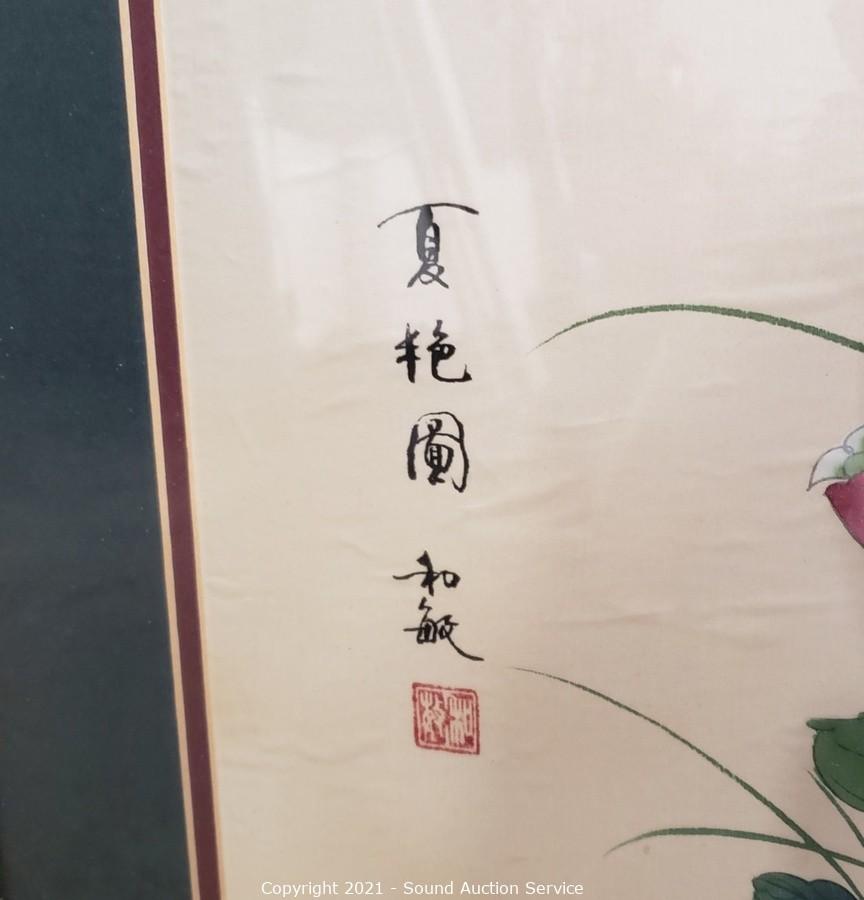 夏艳圖
和敏
和敏
Copyright 2021 - Sound Auction Service